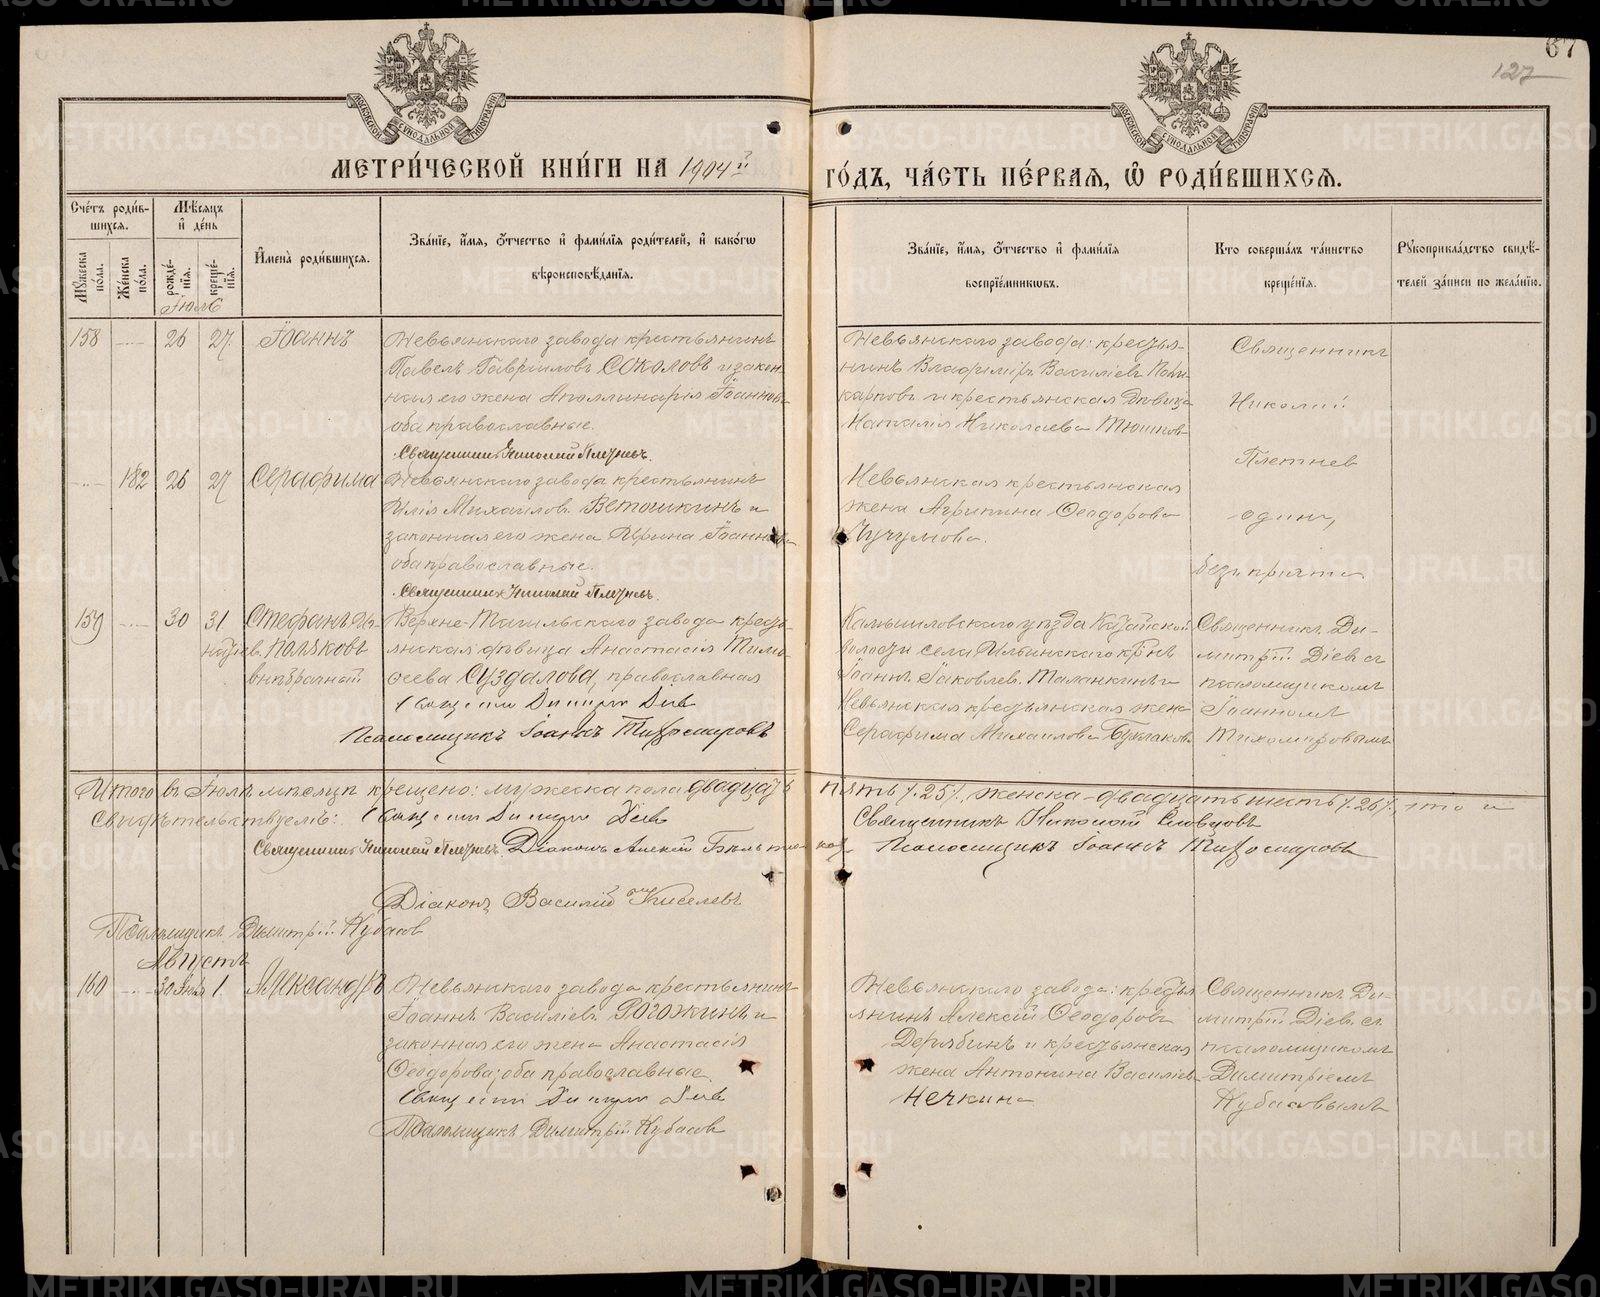 67
127
МОСКОВСКОЙ СѴНОДАЛЬНОЙ ТИПОГРАФІИ
МОСКОВСКОЙ СѴНОДАЛЬНОЙ ТИПОГРАФІИ
МЕТРИ́ЧЕСКОЙ КНИ́ГИ НА 1904й ГО́ДЪ, ЧА́СТЬ ПЕ́РВАЯ, Ѡ РОДИ́ВШИХСЯ.
Сче́тъ роди́вшихся.
Мꙋ́жеска по́ла.
Же́нска по́ла.
Мѣ́сяцъ и́ де́нь
рожде́нїѧ.
креще́нїѧ.
И҆мена̀ роди́вшихсѧ.
Зва́нїе, и҆́мѧ, ѻ҆́тчество и҆ фами́лїѧ роди́телей, и҆ како́гѡ вѣроисповѣ́данїѧ.
Зва́нїе, и҆́мѧ, ѻ҆́тчество и҆ фами́лїѧ воспрїе́мникѡвъ.
Кто̀ соверша́лъ та́инство креще́нїѧ.
Рꙋкоприкла́дство свидѣ́телей за́писи по жела́нїю.
Іюль
158 — 26 27. Іоаннъ
Невьянскаго завода крестьянинъ
Павелъ Гавріиловъ Соколовъ и закон-
ная его жена Аполлинарія Іоаннова
оба православные.
Священникъ Николай Плетневъ.
Невьянскаго завода: крестья-
нинъ Владиміръ Василіевъ Поли-
карповъ и крестьянская дѣвица
Наталія Николаева Тюшкова
Священникъ
Николай
Плетнев
один,
безъ причта.
— 182 26 27 Серафима
Невьянскаго завода крестьянинъ
Илія Михаиловъ Ветошкинъ и
законная его жена Ирина Іоаннова
оба православные.
Священникъ Николай Плетневъ.
Невьянская крестьянская
жена Агрипина Ѳеодорова
Чучумова.
159 — 30 31. Стефанъ Поляковъ
внѣбрачный
Верхне-Тагильскаго завода кресть-
янская дѣвица Анастасія Тимо-
ѳеева Суздалова, православная
Священникъ Димитрій Діев
Псаломщикъ Іоаннъ Тихомировъ
Камышловскаго уѣзда
волости села Ильинскаго кр-нъ
Іоаннъ Іаковлев. Таланкинъ и
Невьянская крестьянская жена
Серафима Михаилова
Священникъ Ди-
митрій Діев съ
псаломщикомъ
Іоанномъ
Тихомировымъ
Итого въ Іюлѣ мѣсяцѣ крещено: мужеска пола двадцать пять /.25/., женска - двадцать шесть /.26/., что и
свидѣтельствуемъ: Священникъ Димитрій Діев
Священникъ Николай Словцовъ
Священникъ Николай Плетневъ. Діаконъ Алексій
Псаломщикъ Іоаннъ Тихомировъ
Діаконъ Василій Киселевъ
Псаломщикъ Димитрій Кубасов
Августъ
160 — 30 Іюля 1. Александръ
Невьянскаго завода крестьянинъ
Іоаннъ Василіевъ Рогожкинъ и
законная его жена Анастасія
Ѳеодорова; оба православные.
Священникъ Димитрій Діев
Псаломщикъ Димитрій Кубасов
Невьянскаго завода: кресть-
янинъ Алексій Ѳеодоровъ
Дерябинъ и крестьянская
жена Антонина Василіева
Нечкина
Священникъ Ди-
митрій Діев съ
псаломщикомъ
Димитріемъ
Кубасовымъ
METRIKI.GASO-URAL.RU